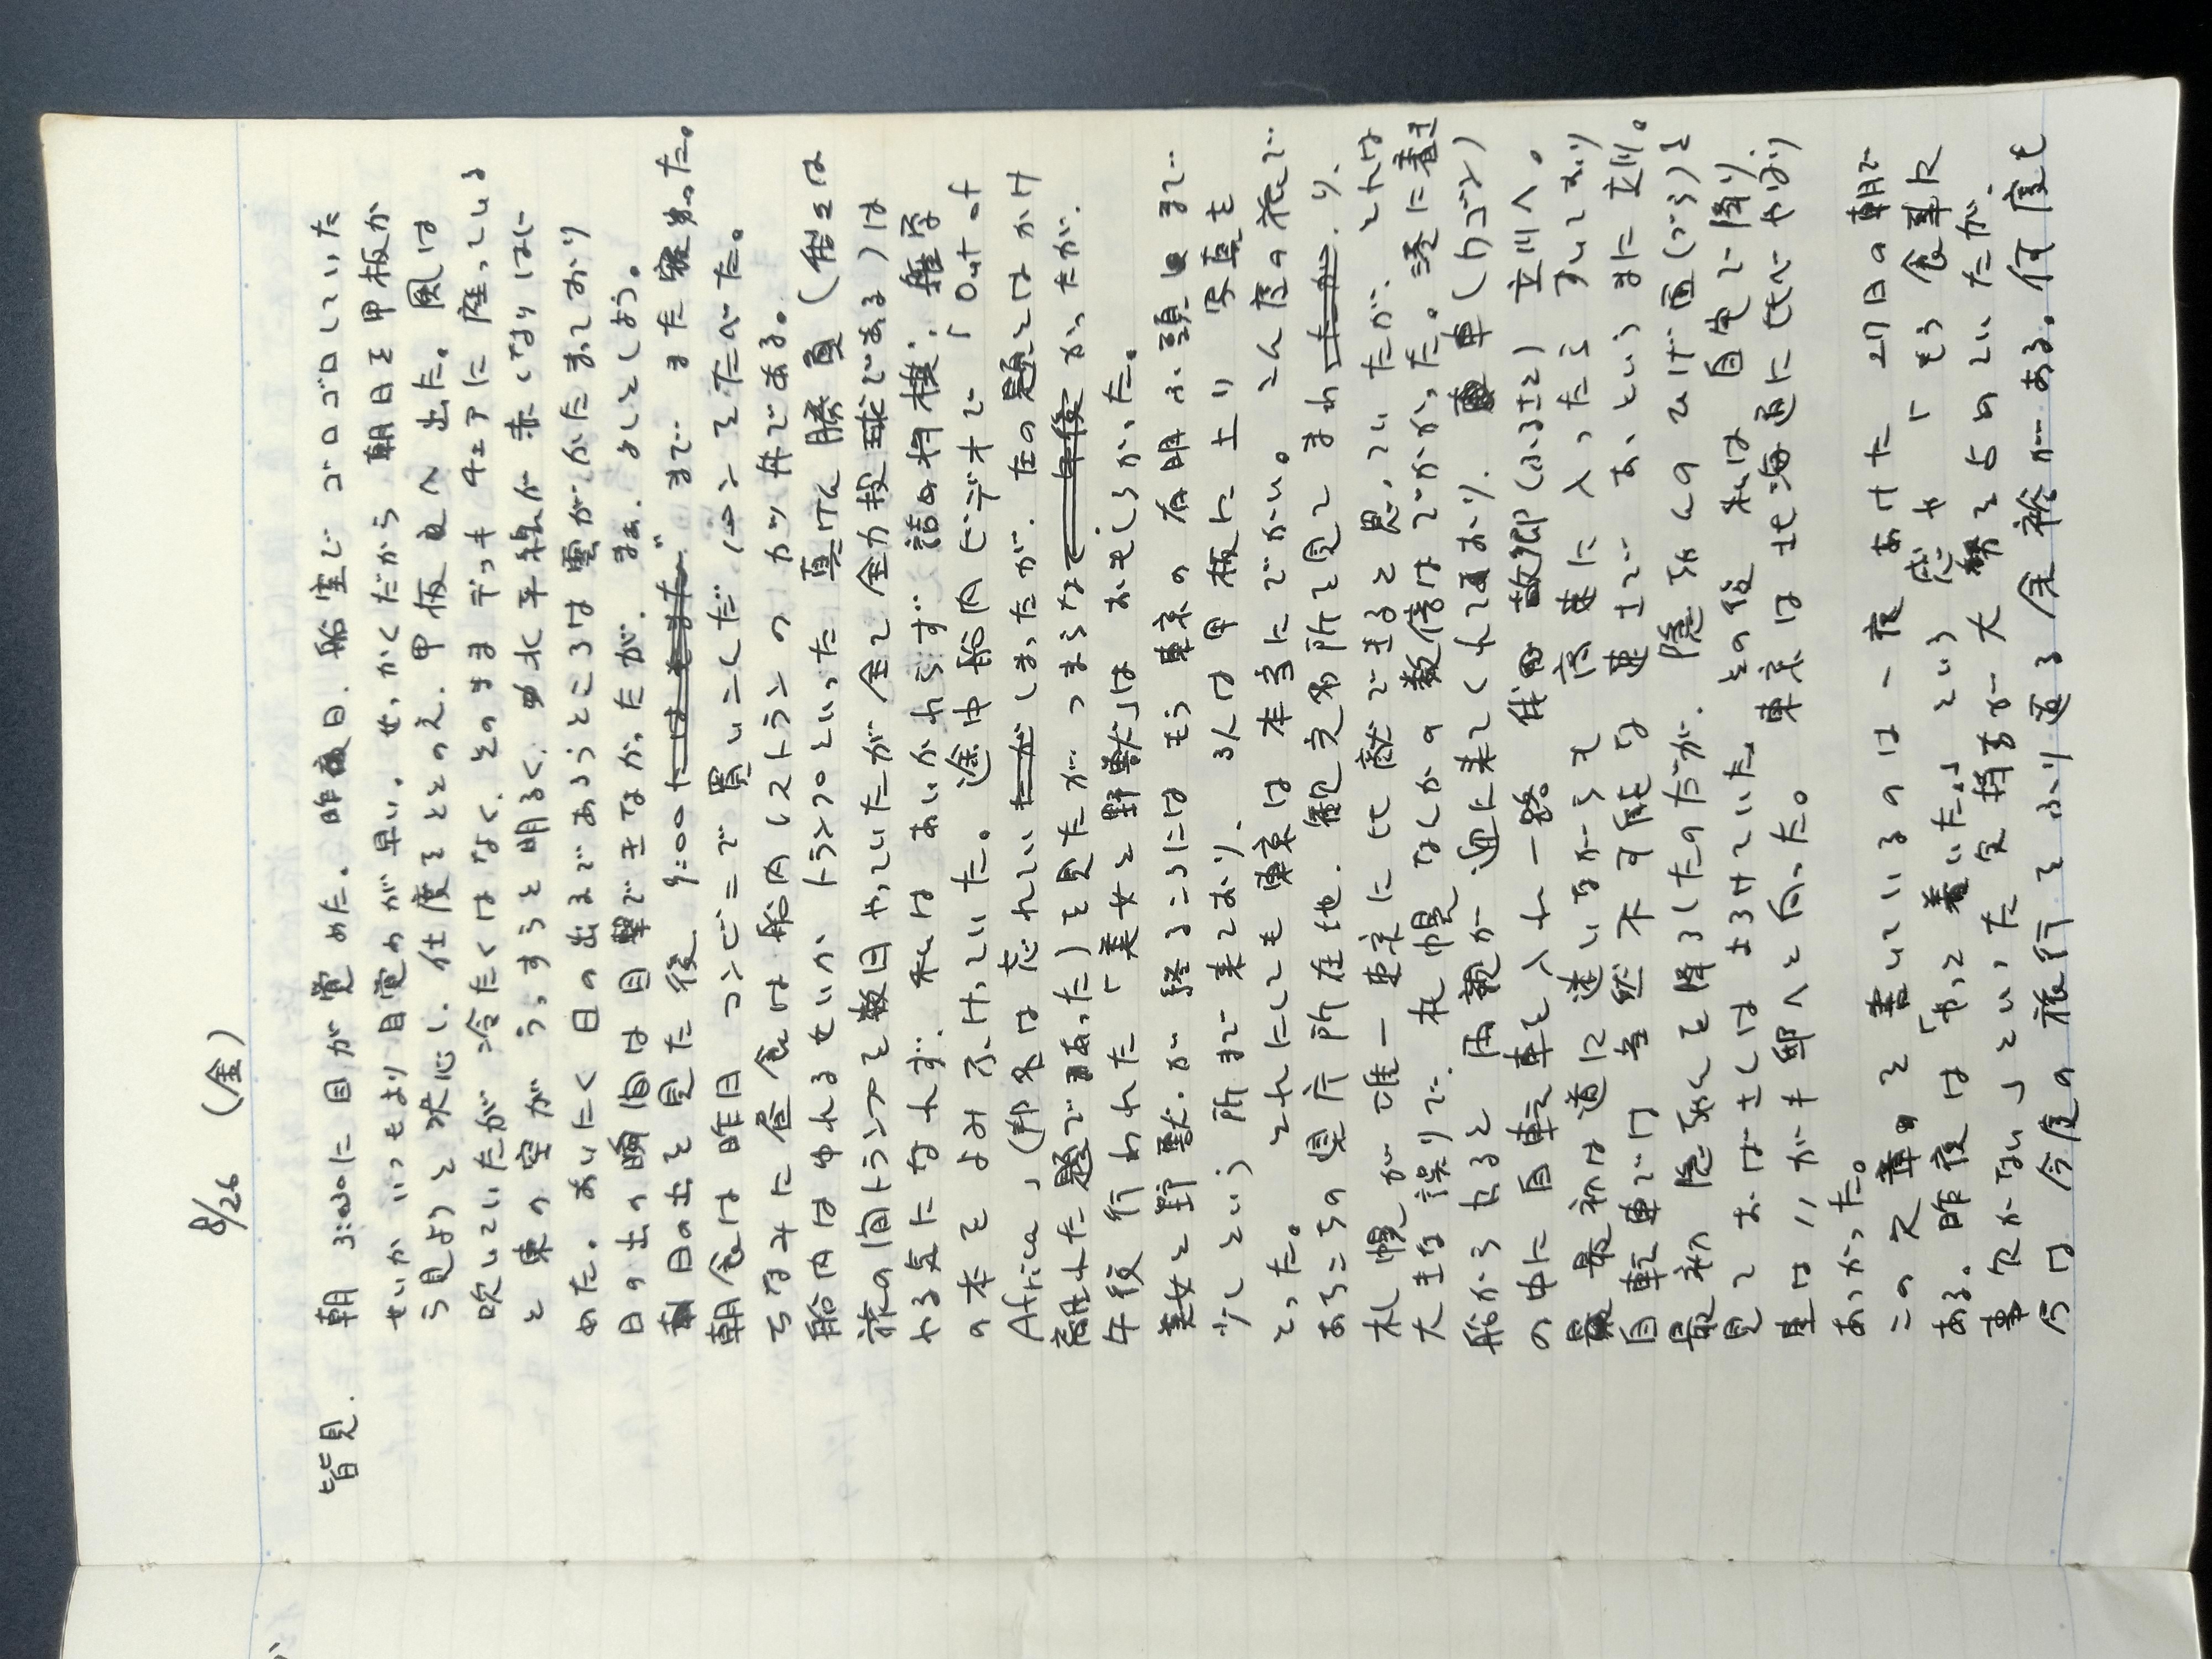 8/26 (金)
皆見. 朝 3:30に目が覚めた。昨日、船室でゴロゴロしていた
せいかいつもより目覚めが早い。せっかくだから朝日を甲板か
ら見ようと決心し、仕度をととのえ、甲板へ出た。風は
吹いていたが冷たくはなく、そのままデッキチェアに座っている
と東の空がうっすらと明るく、水平線が赤くなりはじ
めた。あいにく日の出るであろうところは雲がかたまっており
日の出の瞬間は目撃できなかったが、まぁ、よしとしよう。
日の出を見た後 9:00 まで、また寝入った。
朝食は昨日コンビニで買いこしだパンをたべた。
ちなみに昼食は船内レストランのカツ丼である。
船内はゆれるせいか、トランプといった真けん勝負(俗には
旅の間トランプを数回やっていたが全て全力投球である)は
やる気になれず、私はあいかわらず詰め将棋、雑学
の本をよみふけっていた。途中船内ビデオで「Out of
Africa」(邦名は忘れていしまったが、在の題とはかけ
離れた題であった)を見たがつまらなかったが、
午後行われた「美女と野獣」はおもしろかった。
美女と野獣が終るころにはもう東京の有明ふ頭まで
少しという所まで来ており、3人は甲板に上り写真を
とった。それにしても東京は本当にでかい。こん度の旅で
あちこちの県庁所在地、観光名所を見てまわり、
札幌が唯一東京に匹敵できると思っていたが、それは
大きな誤りで、札幌なんかの数倍はでかかった。港に着き
船から出ると、両親が迎に来てくれており、車(ワゴン)
の中に自転車を入れ一路 故郷(ふるさと)立川へ。
最初は道に迷いながらも高速に入ったらすいており
自転車では当然不可能な速さであっというまに立川。
最初隠を降ろしたのだが、隠ちんのひげ面(づら)を
見ておばさんはおどろけていた その後 私は自宅で降り、
星は川がき邸へと向った。東京は北海道に比べやはり
あつかった。
この文章を書いているのは一夜あけた27日の朝で
ある。昨夜は「やっと着いた。」という感や「もう食事に
事欠かない」といった安捕が大勢を占めていたが、
今は今度の旅行をふり返る余裕がある。何度も